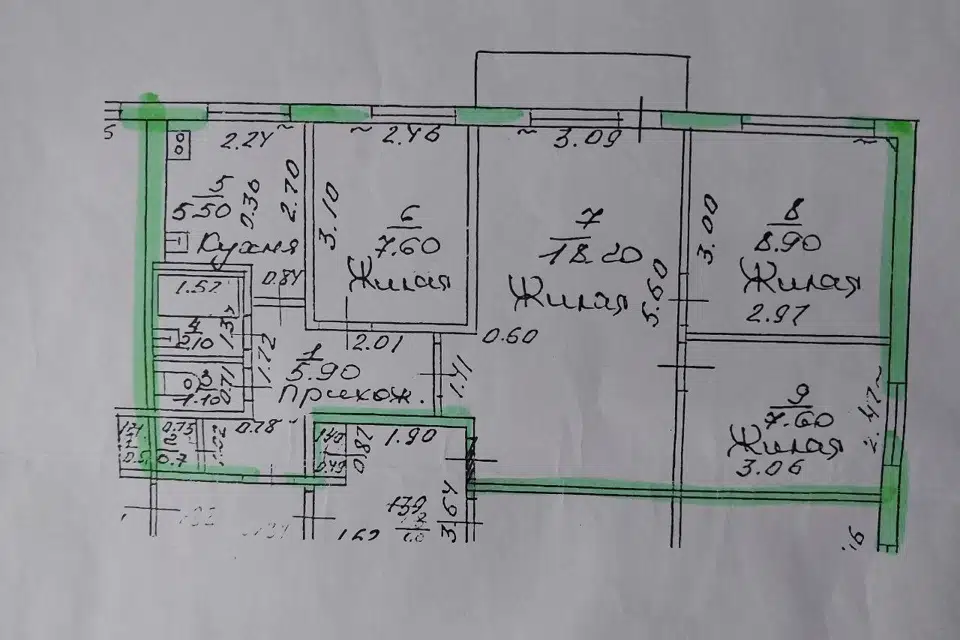 2.24
2.46
3.09
5
5.50
0.36
2.70
Кухня
3.10
6
7.60
Жилая
7
18.20
Жилая
5.60
3.00
8
8.90
Жилая
2.97
1.57
0.84
4
2.10
1.72
2.01
0.60
1
5.90
прихож.
1.41
3
1.10
0.71
0.78
0.75
2
0.7
1.40
0.49
0.87
1.90
9
7.60
Жилая
3.06
2.47
3.64
1.62